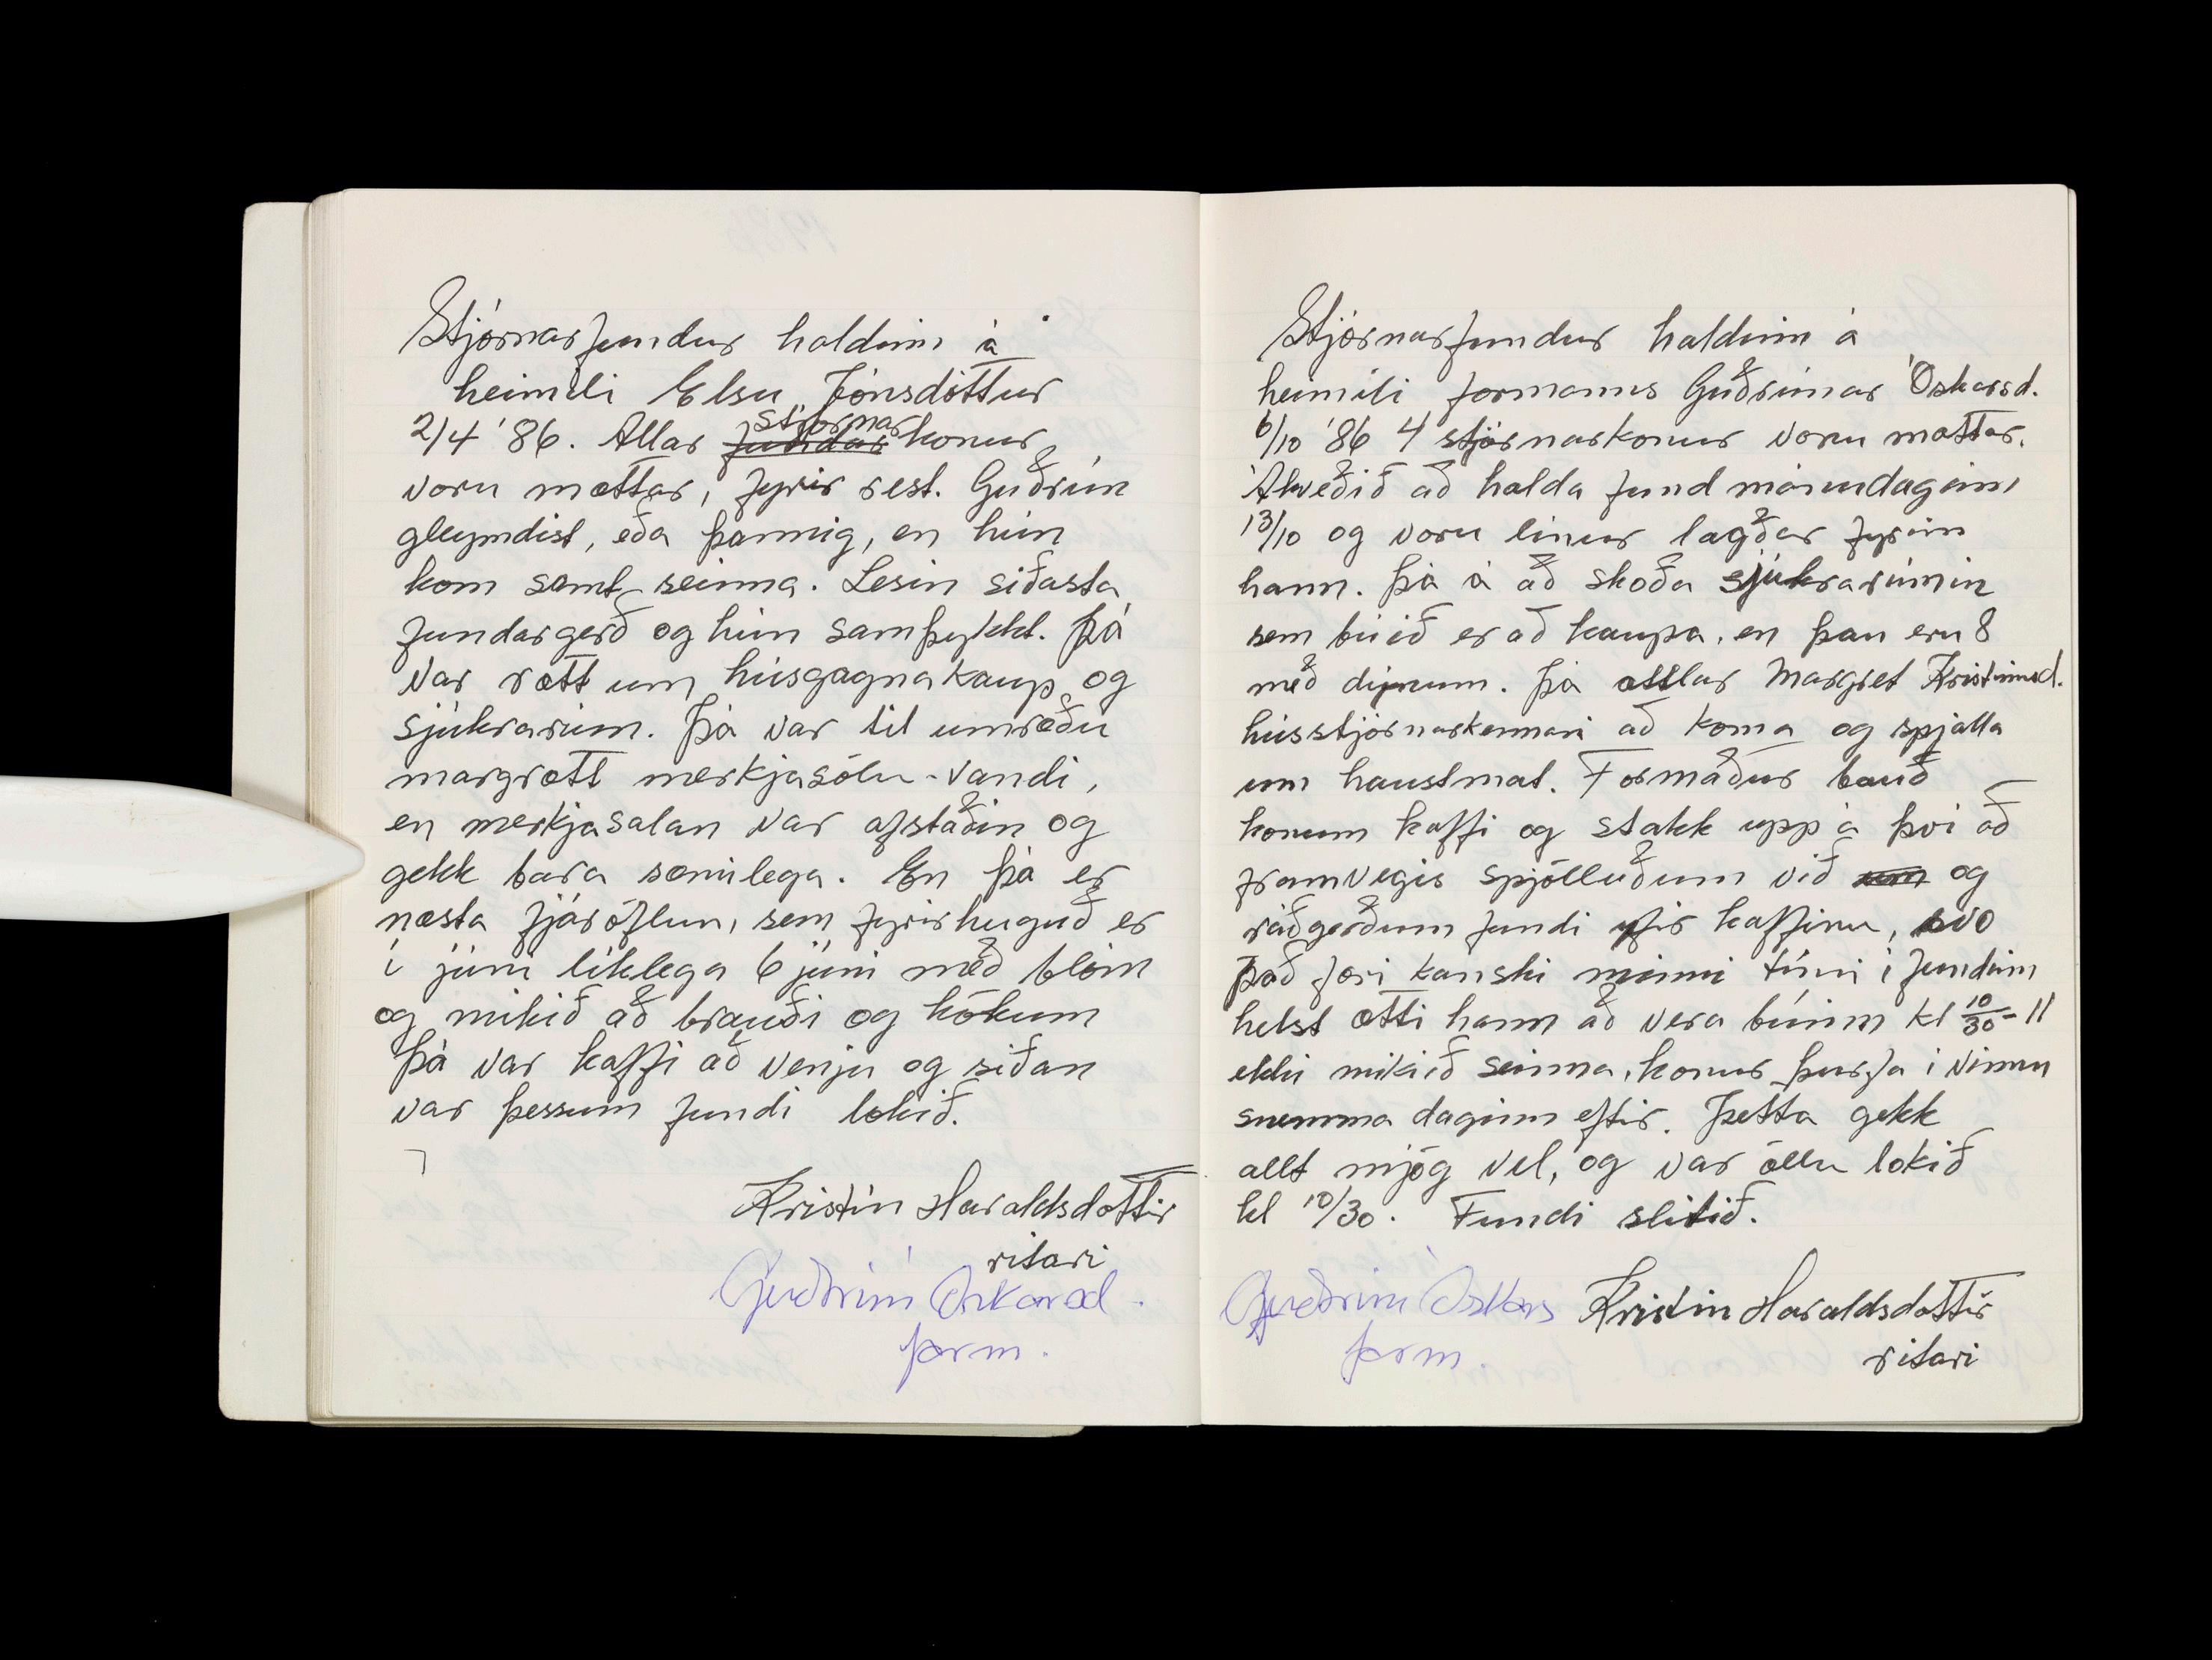 Stjórnarfundur haldinn á
heimili Elsu Jónsdóttur
2/4 '86. Allar fundar stjórnar konur
voru mættar, fyrir rest. Guðrún
gleymdist, eða þannig, en hún
kom samt seinna. Lesin síðasta
fundargerð og hún samþykkt. Þá
var rætt um húsgagnakaup og
sjúkrarúm. Þá var til umræðu
margrætt merkjasölu-vandi,
en merkjasalan var afstaðin og
gekk bara sæmilega. En þá er
næsta fjáröflun, sem fyrirhuguð er
í júni líklega 6 júni með blóm
og mikið að brauði og kökum
Þá var kaffi að venju og síðan
var þessum fundi lokið.
Kristín Haraldsdóttir
ritari
Guðrún Óskarsd.
form.
Stjórnarfundur haldinn á
heimili formanns Guðrúnar Óskarsd.
6/10 '86 4 stjórnarkonur voru mættar.
Ákveðið að halda fund mánudaginn
13/10 og voru línur lagðar fyrir
hann. Þá á að skoða sjúkrarúmin
sem búið er að kaupa, en þau eru 8
með dýnum. Þá ætlar Margret Kristinsd.
hússtjórnarkennari að koma og spjalla
um haustmat. Formaður bauð
konum kaffi og stakk uppá því að
framvegis spjölluðum við um og
ráðgerðum fundi yfir kaffinu, svo
það færi kanski minni tími í fundinn
helst ætti hann að vera búinn kl 10/30-11
ekki mikið seinna, konur þurfa í vinnu
snemma daginn eftir. Þetta gekk
allt mjög vel, og var öllu lokið
kl 10/30. Fundi slitið.
Guðrún Óskars Kristín Haraldsdóttir
form. ritari